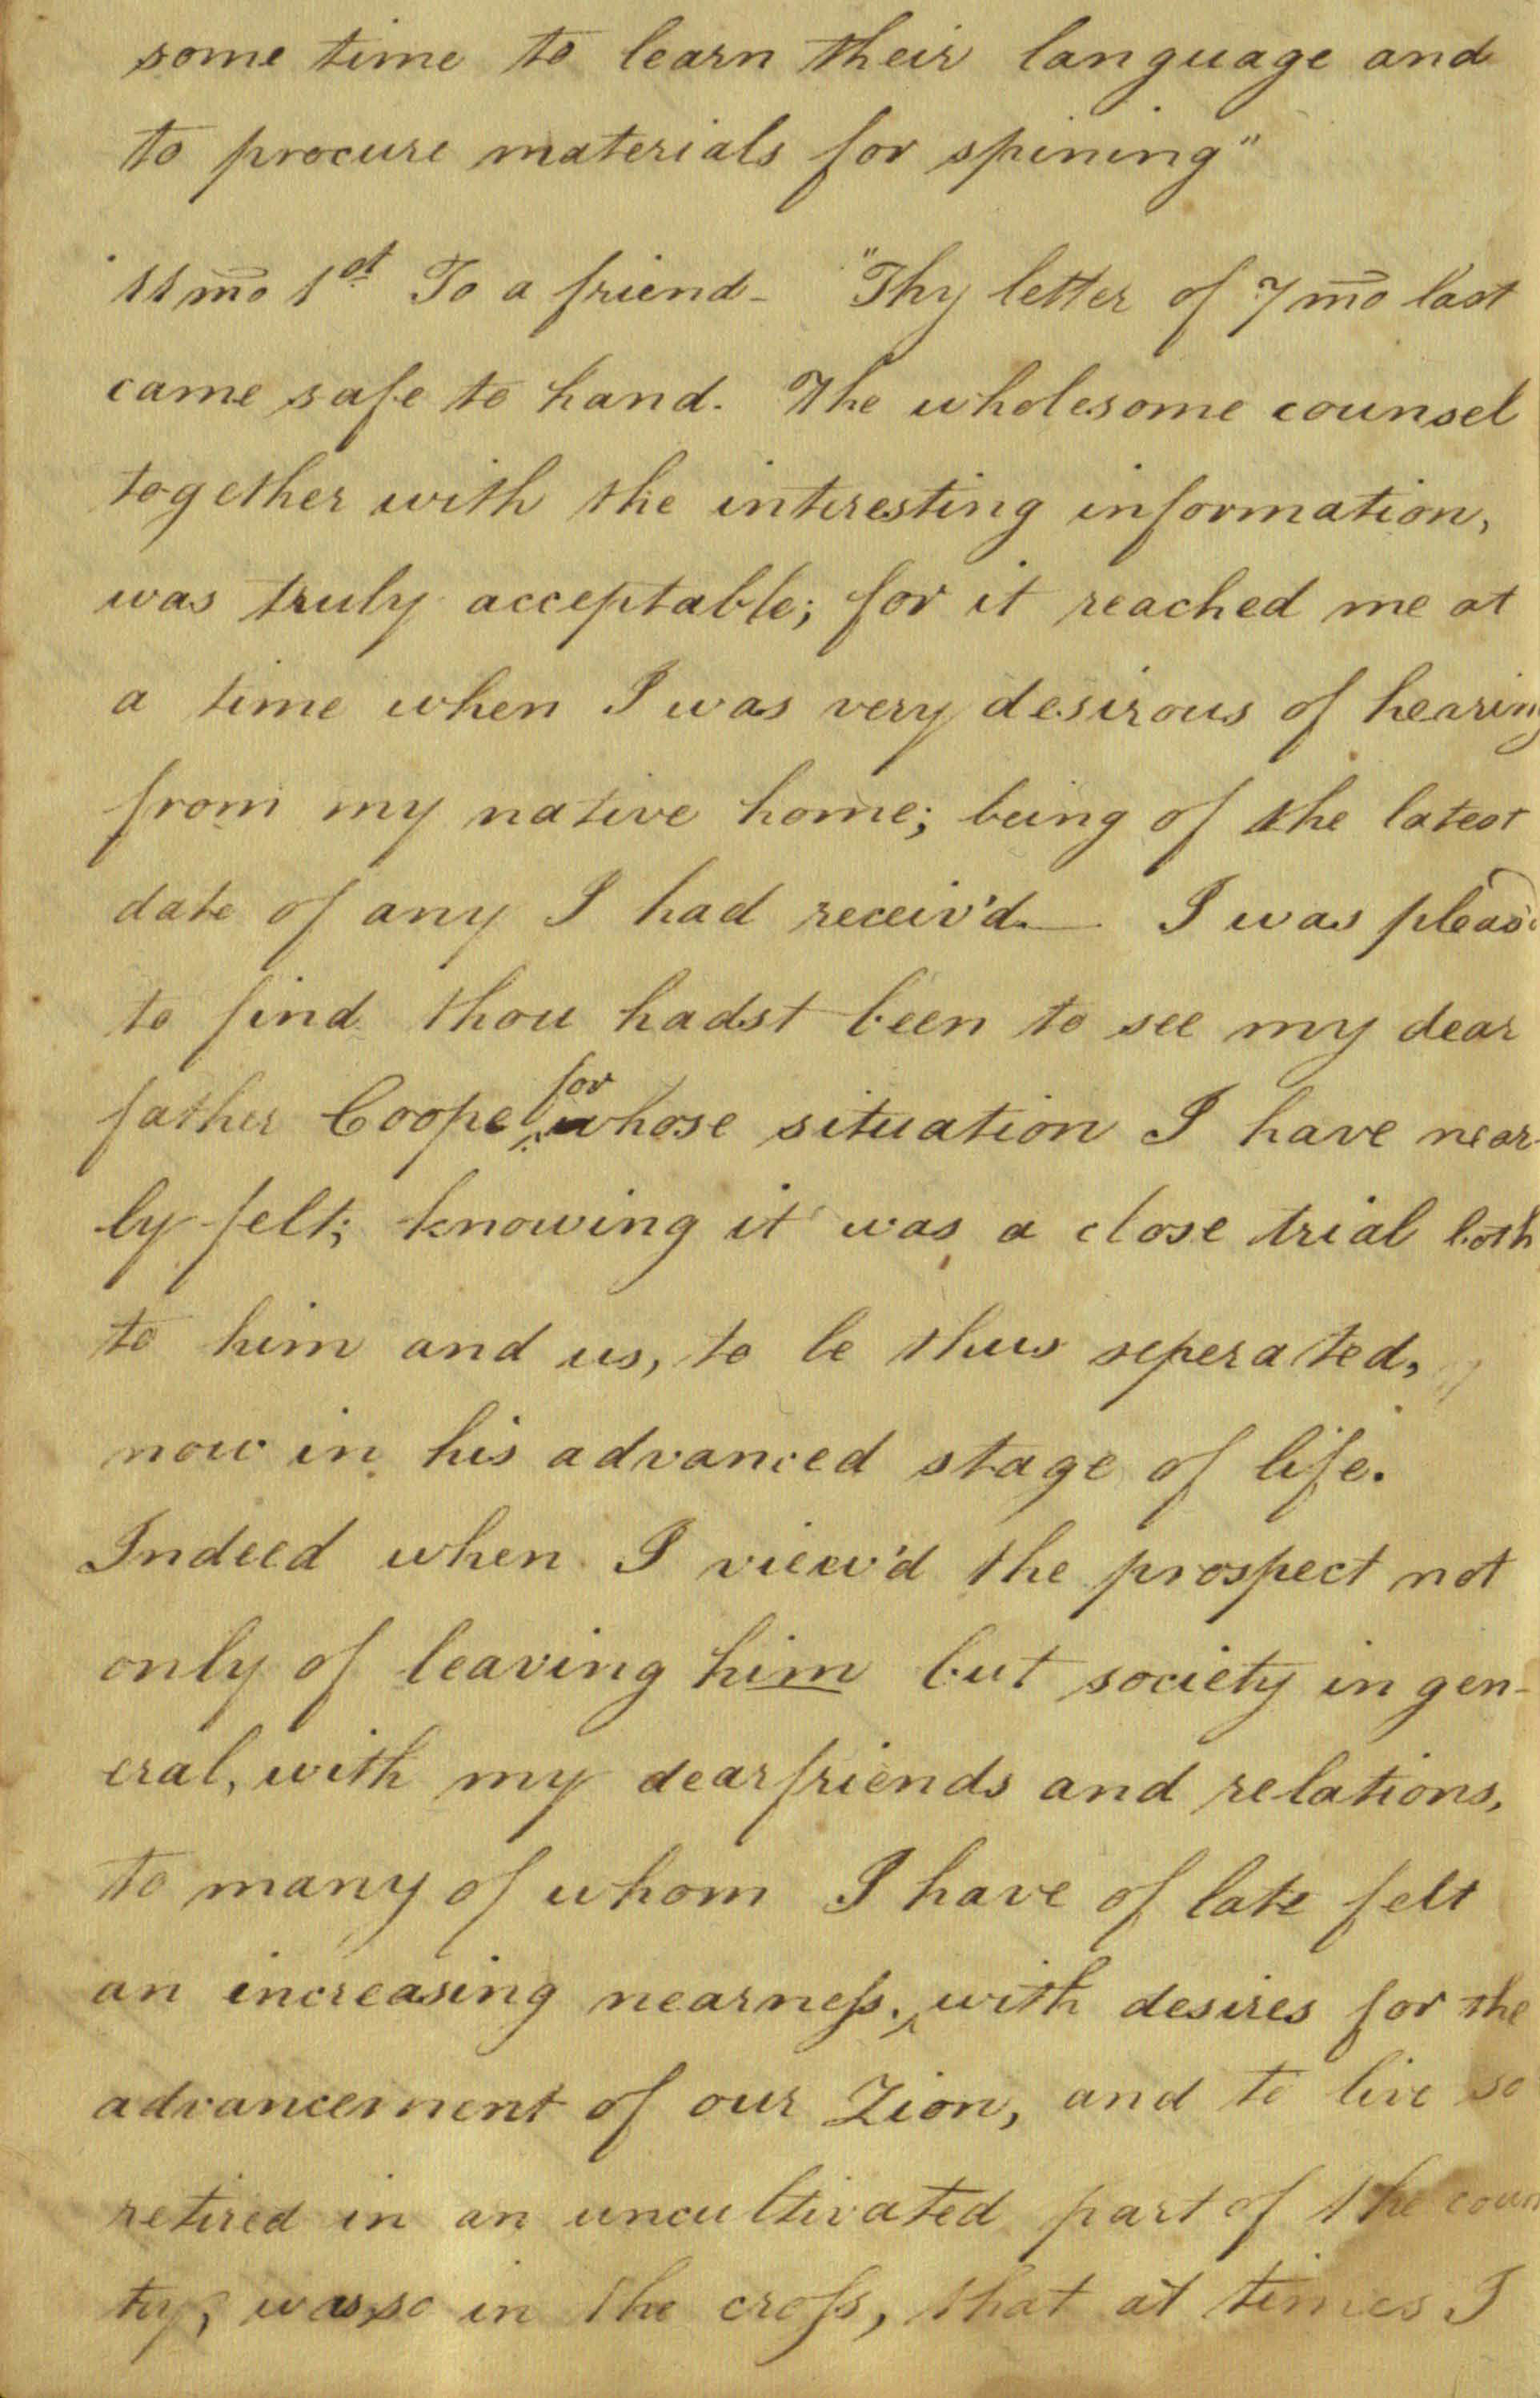 some time to learn their language and
to procure materials for spining"
11 mo 1st To a friend - "Thy letter of 7 mo last
came safe to hand. The wholesome counsel
together with the interesting information,
was truly acceptable; for it reached me at
a time when I was very desirous of hearing
from my native home; being of the latest
date of any I had receiv'd. — I was pleas'd
to find thou hadst been to see my dear
father Coope for whose situation I have near-
ly felt; knowing it was a close trial both
to him and us, to be thus seperated,
now in his advanced stage of life.
Indeed when I view'd the prospect not
only of leaving him but society in gen-
eral, with my dear friends and relations,
to many of whom I have of late felt
an increasing nearness. with desires for the
advancement of our Zion, and to live so
retired in an uncultivated part of the coun
ty, was so in the cross, that at times I